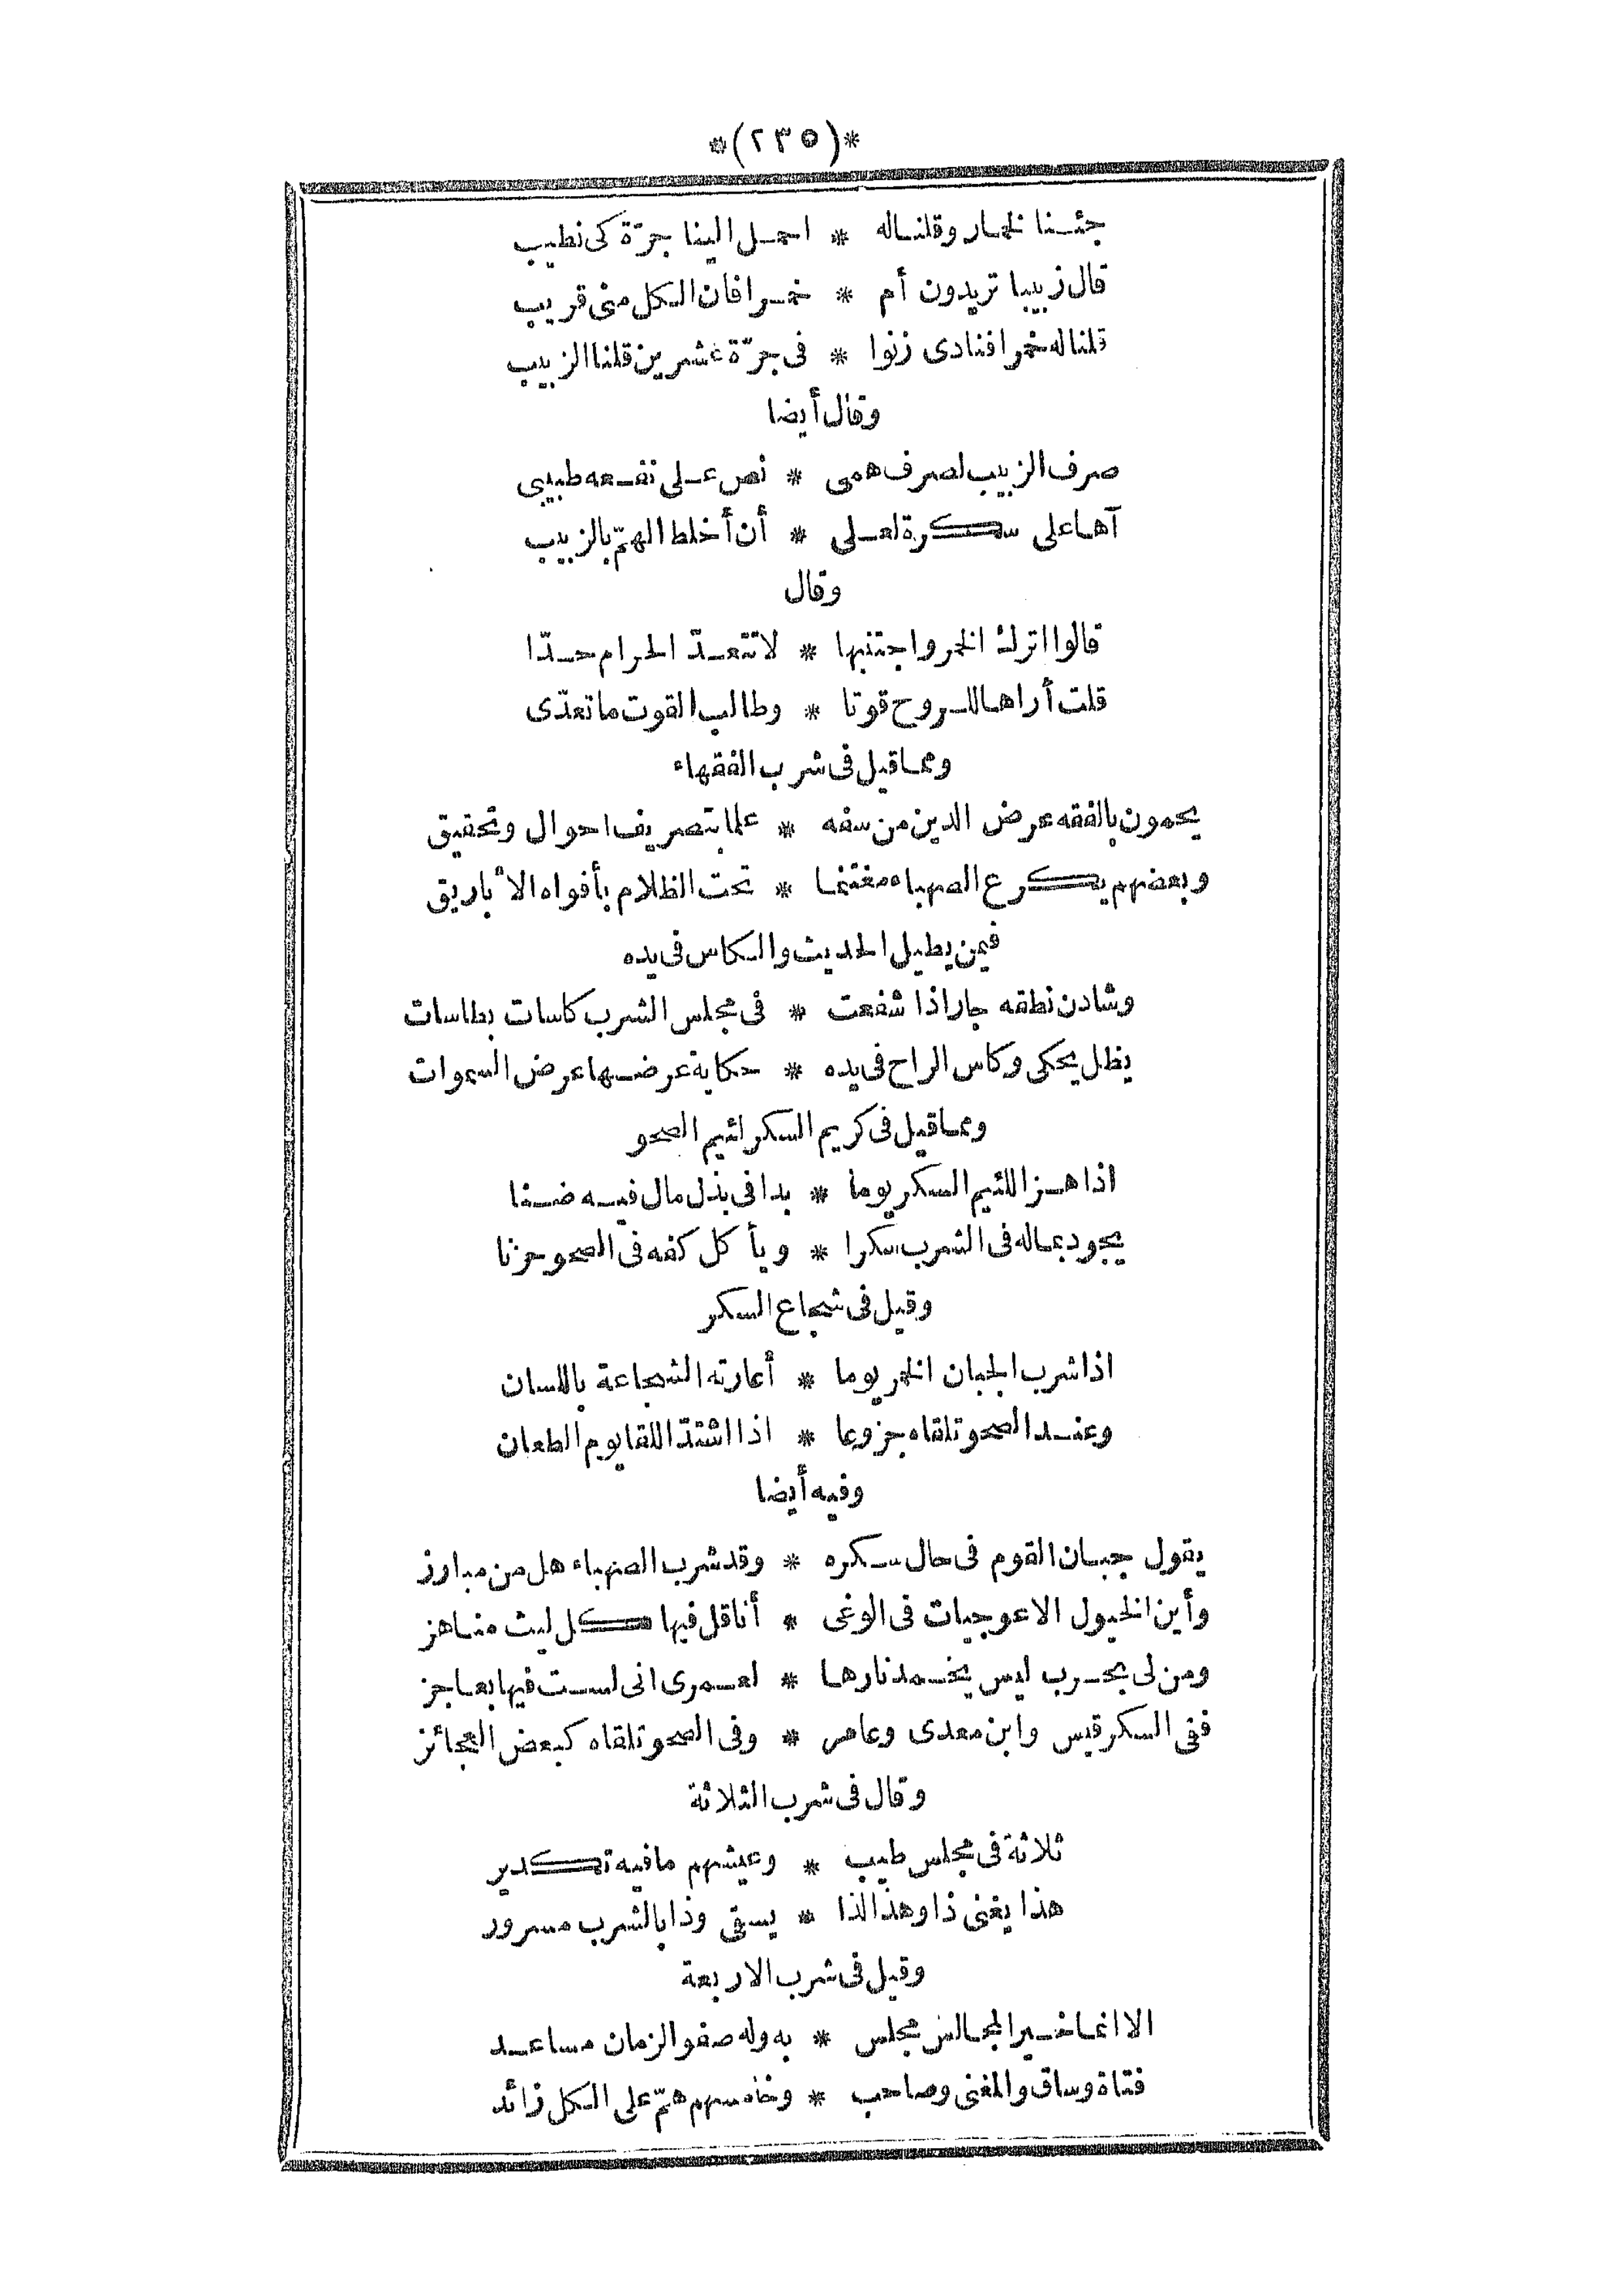 *(٢٣٥)*
جئنا لخمار وقلنا له * احمل الينا جرّة كى نطيب
قال زبيبا تريدون أم * خمرا فان الكل منى قريب
قلنا له خمرا فنادى زنوا * فى جرّة عشرين قلنا الزبيب
وقال أيضا
صرف الزبيب لصرف همى * نص على نفعه طبيبى
آها على سكرة لعلى * أن أخلط الهمّ بالزبيب
وقال
قالوا اترك الخمر واجتنبها * لا تتعدّ الحرام حدّا
قلت أراها للروح قوتا * وطالب القوت ما تعدّى
ومما قيل فى شرب الفقهاء
يحمون بالفقه عرض الدين من سفه * علما بتصريف احوال وتحقيق
وبعضهم يكرع الصهباء مغتنما * تحت الظلام بأفواه الأباريق
فيمن يطيل الحديث والكاس فى يده
وشادن نطقه جار اذا شفعت * فى مجلس الشرب كاسات بطاسات
يظل يحكى وكاس الراح فى يده * حكاية عرضها عرض السموات
ومما قيل فى كريم السكر لئيم الصحو
اذا هز اللئيم السكر يوما * بدا فى بذل مال فيه ضنا
يجود بماله فى الشرب سكرا * ويأكل كفه فى الصحو حزنا
وقيل فى شجاع السكر
اذا شرب الجبان الخمر يوما * أعارته الشجاعة باللسان
وعند الصحو تلقاه جزوعا * اذا اشتدّ اللقا يوم الطعان
وفيه أيضا
يقول جبان القوم فى حال سكره * وقد شرب الصهباء هل من مبارز
وأين الخيول الاعوجيات فى الوغى * أناقل فيها كل ليث مناهز
ومن لى بحرب ليس يخمد نارها * لعمرى انى لست فيها بعاجز
ففى السكر قيس وابن معدى وعامر * وفى الصحو تلقاه كبعض العجائز
وقال فى شرب الثلاثة
ثلاثة فى مجلس طيب * وعيشهم ما فيه تكدير
هذا يغنى ذا وهذا لذا * يسقى وذا بالشرب مسرور
وقيل فى شرب الاربعة
الا انما خير المجالس مجلس * به وله صفو الزمان مساعد
فتاة وساق والمغنى وصاحب * وخامسهم همّ على الكل زائد